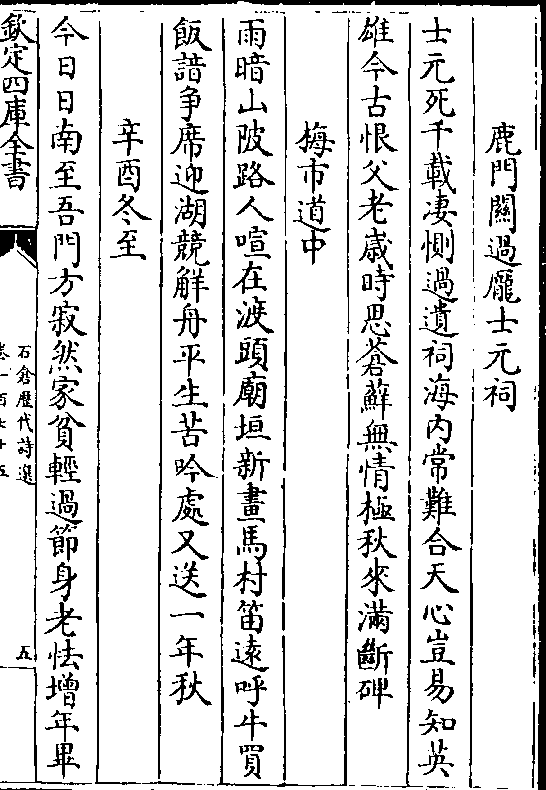 鹿門關過龐士元祠
士元死千載淒惻過遺祠海内常難合天心豈易知英
雄今古恨父老歲時思蒼蘚無情極秋來滿斷碑
梅市道中
雨暗山陂路人喧在渡頭廟垣新畫馬村笛遠呼牛買
飯諳争席迎湖競觧舟平生苦吟處又送一年秋
辛酉冬至
今日日南至吾門方寂然家貧輕過節身老怯增年畢
欽定四庫全書
石倉歷代詩選
卷一百七十五
五